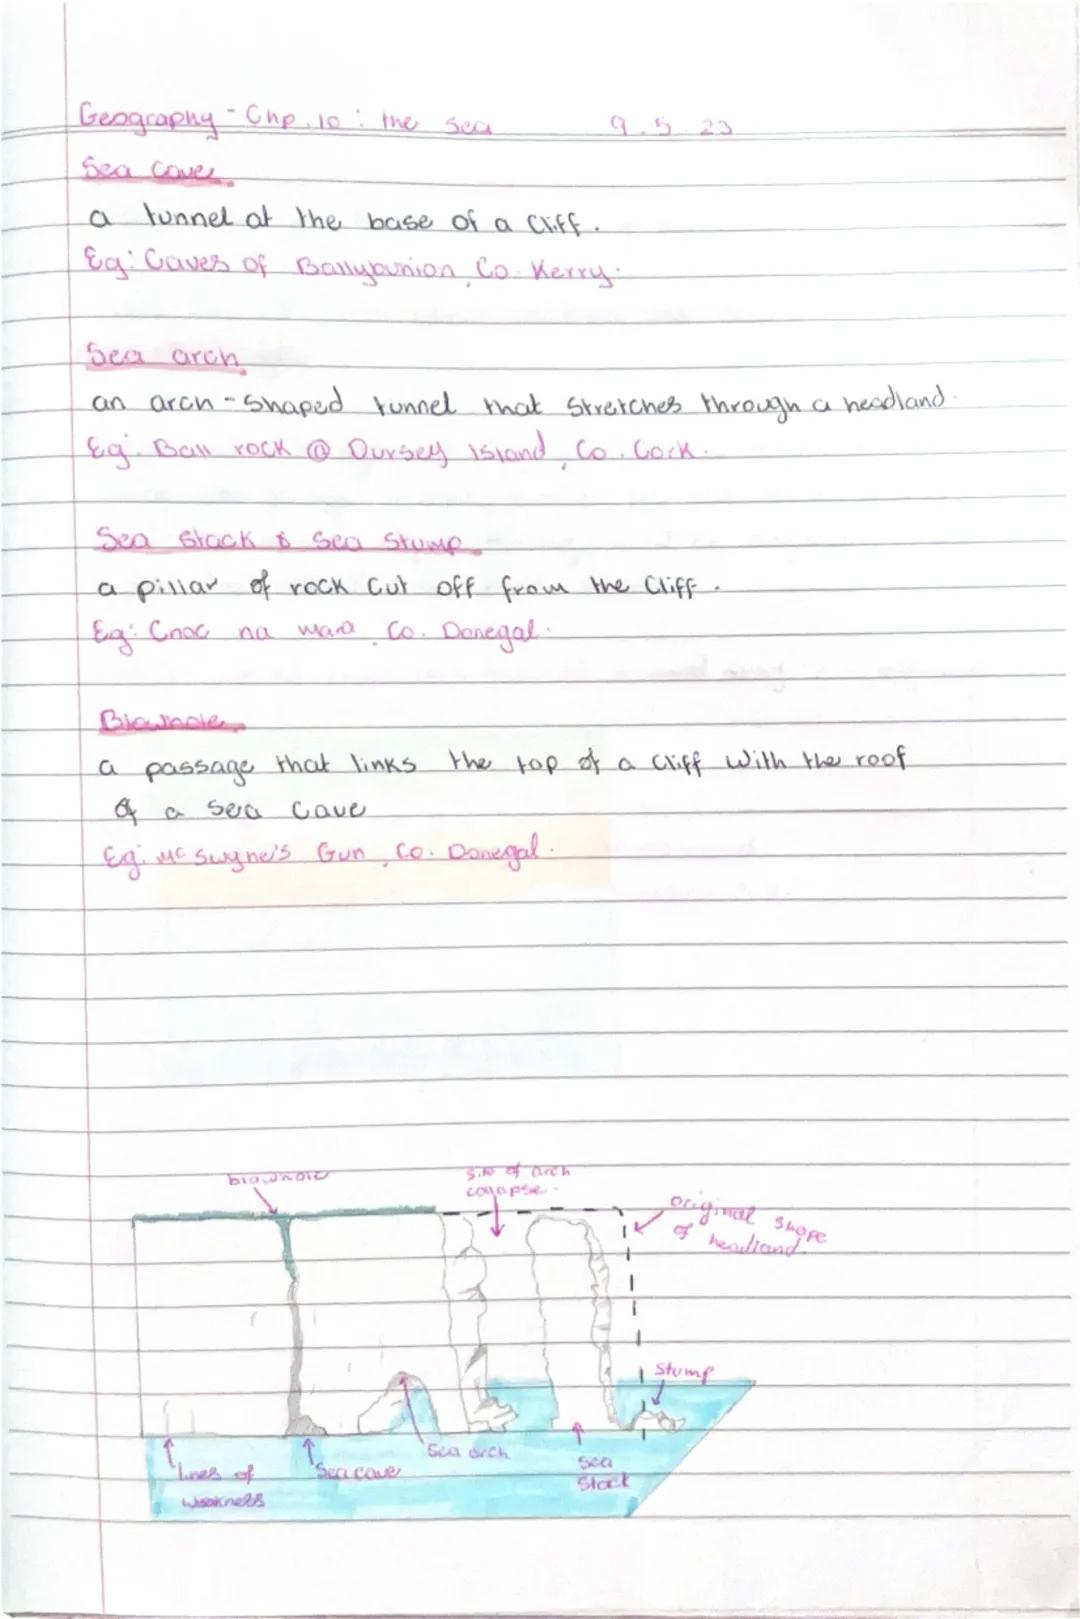 Geography - Chp. 10 : the sea 9.5.23
Sea Cave
a tunnel at the base of a Cliff.
Eg: Caves of Ballybunion, Co. Kerry.
Sea arch
an arch-shaped tunnel that stretches through a headland.
Eg: Ball rock @ Dursey Island, Co. Cork.
Sea Stack & Sea Stump
a pillar of rock cut off from the Cliff.
Eg: Cnoc na mara, Co. Donegal.
Blowhole
a passage that links the top of a Cliff with the roof
of a Sea Cave
Eg: Mc Swyne's Gun, Co. Donegal.
blowhole
Site of arch
collapse.
Original shape
of headland.
Stump
Sea arch
Sea
Stack
lines of
weakness
Sea cave